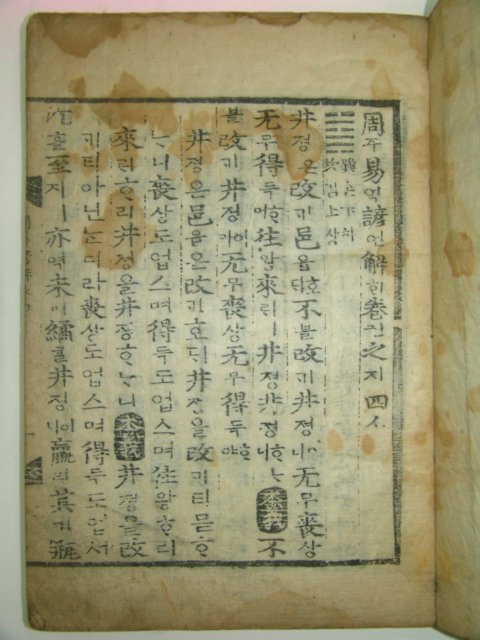 周쥬易역諺언解ᄒᆡ卷권之지四ᄉ
巽손下하
坎감上샹
井졍은改ᄀᆡ邑읍호ᄃᆡ不블改ᄀᆡ井졍이니无무喪상
无무得득ᄒᆞ며往왕來ᄅᆡ井졍井졍ᄒᆞᄂᆞ니本義不
블改ᄀᆡ井졍이라无무喪상无무得득ᄒᆞ야
井졍은邑읍은改ᄀᆡ호ᄃᆡ井졍을改ᄀᆡ티몯ᄒᆞ
ᄂᆞ니喪상도업스며得득도업스며往왕ᄒᆞ리
來ᄅᆡᄒᆞ리井졍을井졍ᄒᆞᄂᆞ니本義井졍을改
ᄀᆡ티아닌ᄂᆞᆫ디라喪상도업스며得득도업서
汔흘至지ㅣ亦역未미繘귤井졍이니羸리其기甁